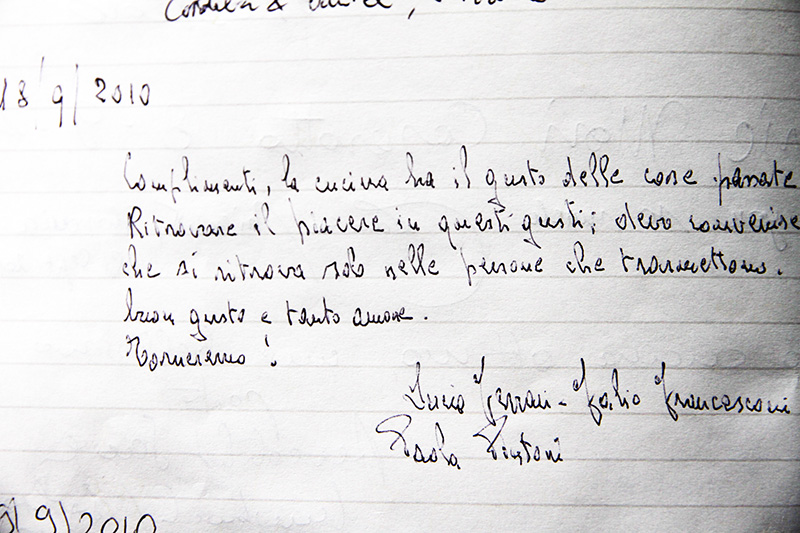 18/9/2010
Complimenti, la cucina ha il gusto delle cose passate
Ritrovare il piacere in questi gusti; devo convenire
che si ritrova solo nelle persone che trasmettono.
buon gusto e tanto amore.
Torneremo!
Lucio Ferrari - Fabio Francesconi
Paola
9/2010